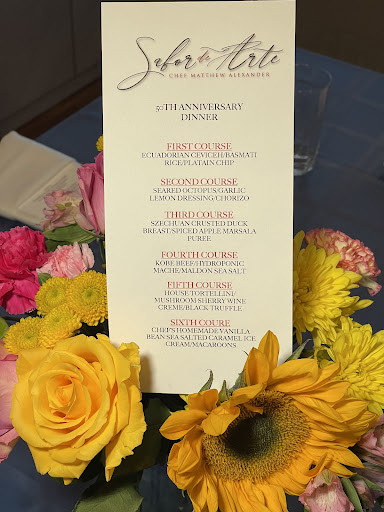 Sabor de Arte
CHEF MATTHEW ALEXANDER
50TH ANNIVERSARY
DINNER
FIRST COURSE
ECUADORIAN CEVICEH/BASMATI
RICE/PLATAIN CHIP
SECOND COURSE
SEARED OCTOPUS/GARLIC
LEMON DRESSING/CHORIZO
THIRD COURSE
SZECHUAN CRUSTED DUCK
BREAST/SPICED APPLE MARSALA
PUREE
FOURTH COURSE
KOBE BEEF/HYDROPONIC
MACHE/MALDON SEA SALT
FIFTH COURSE
HOUSE TORTELLINI/
MUSHROOM SHERRY WINE
CREME/BLACK TRUFFLE
SIXTH COURE
CHEF'S HOMEMADE VANILLA
BEAN SEA SALTED CARAMEL ICE
CREAM/MACAROONS